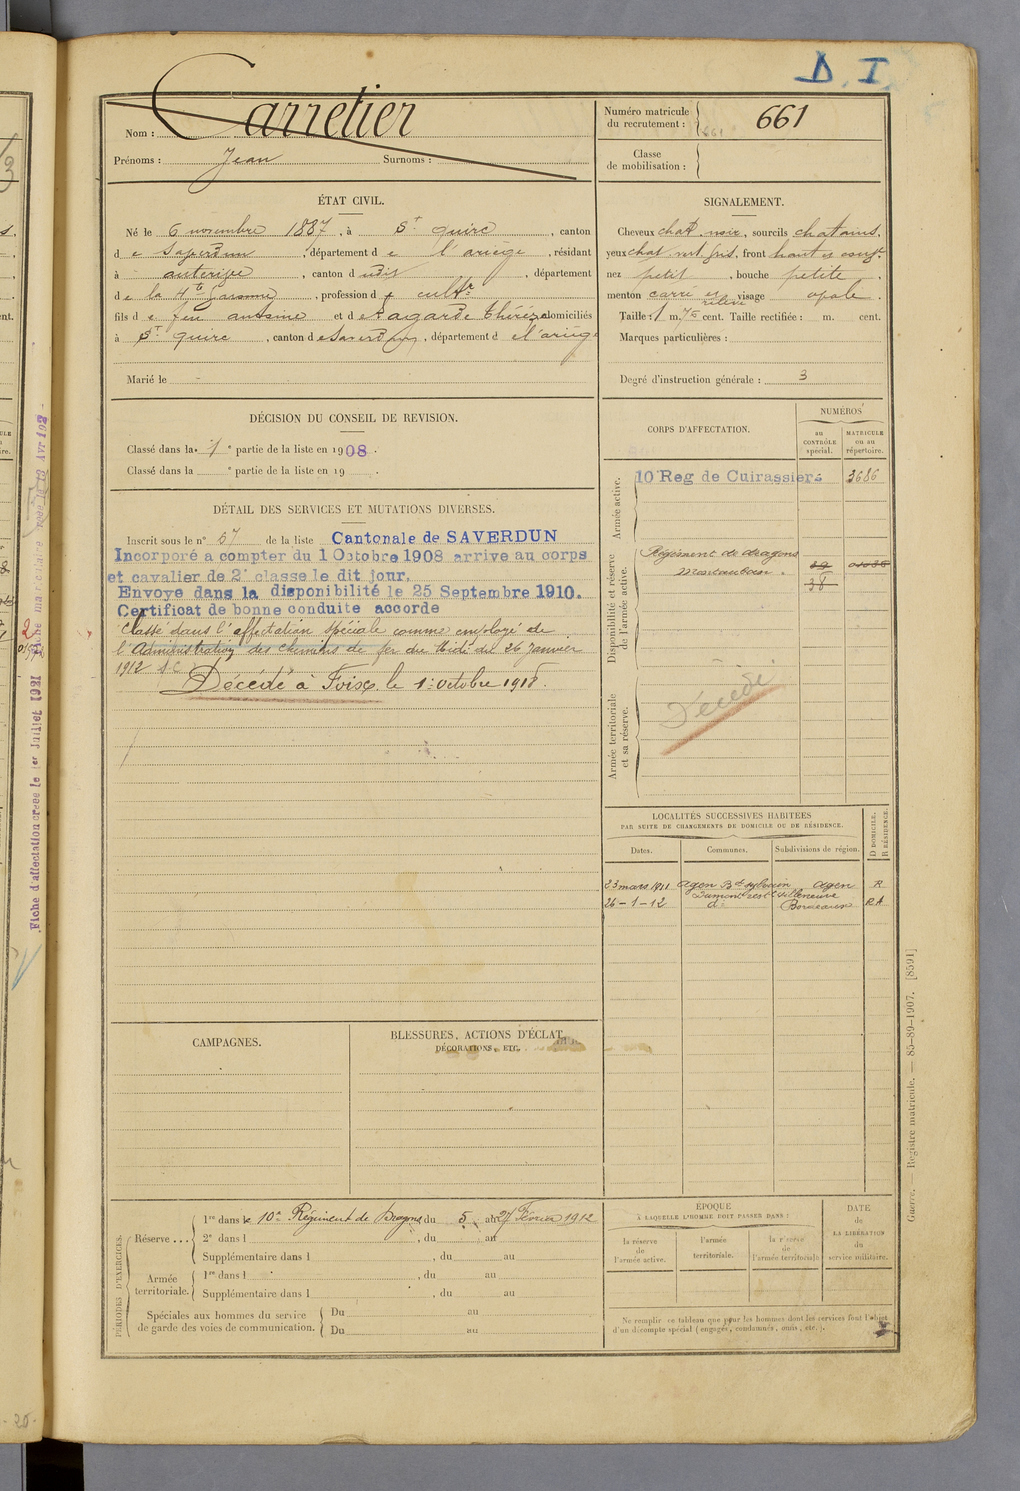 D. I
Nom : Carretier
Prénoms : Jean Surnoms :
Numéro matricule
du recrutement : 661
661
Classe
de mobilisation :
ÉTAT CIVIL.
Né le 6 novembre 1887, à St quirc, canton
de Saverdun, département de l'ariège, résidant
à auterive, canton dudit, département
de la hte garonne, profession de cultr
fils de feu antoine et de Lagarde Thérèze domiciliés
à St quirc, canton de Saverdun, département de l'ariège
Marié le
SIGNALEMENT.
Cheveux chat noir, sourcils chatains
yeux chat vert gris, front haut et
nez petit, bouche petite,
menton carré et relevé visage opale.
Taille : 1 m. 75 cent. Taille rectifiée : m. cent.
Marques particulières :
Degré d'instruction générale : 3
DÉCISION DU CONSEIL DE REVISION.
Classé dans la 1e partie de la liste en 1908.
Classé dans la e partie de la liste en 19 .
DÉTAIL DES SERVICES ET MUTATIONS DIVERSES.
Inscrit sous le n° 67 de la liste Cantonale de SAVERDUN
Incorporé a compter du 1 Octobre 1908 arrive au corps
et cavalier de 2e classe le dit jour,
Envoye dans la disponibilité le 25 Septembre 1910.
Certificat de bonne conduite accorde
Classé dans l'affectation spéciale comme employé de
l'Administration des Chemins de fer du Midi du 26 Janvier
1912
Décédé à Foix, le 1er octobre 1918.
CORPS D'AFFECTATION.
NUMÉROS
au
CONTRÔLE
spécial.
MATRICULE
ou au
répertoire.
Armée active.
10 Reg de Cuirassiers 3686
Disponibilité et réserve
de l'armée active.
Régiment de dragons
Montauban
38
Armée territoriale
et sa réserve.
Décédé
LOCALITÉS SUCCESSIVES HABITÉES
PAR SUITE DE CHANGEMENTS DE DOMICILE OU DE RÉSIDENCE.
Dates. Communes. Subdivisions de région. D DOMICILE. R RÉSIDENCE.
23 mars 1911 Agen Bd Sylvain Agen R
Dumont Villeneuve
26-1-12 d° Bordeaux RA
CAMPAGNES.
BLESSURES, ACTIONS D'ÉCLAT,
DÉCORATIONS, ETC.
PÉRIODES D'EXERCICES.
Réserve...
1re dans le 10e Régiment de Dragons du 5 au 27 Février 1912
2e dans l , du au
Supplémentaire dans l , du au
Armée
territoriale.
1re dans l , du au
Supplémentaire dans l , du au
Spéciales aux hommes du service
de garde des voies de communication.
Du au
Du au
ÉPOQUE
À LAQUELLE L'HOMME DOIT PASSER DANS :
la réserve
de
l'armée active.
l'armée
territoriale.
la réserve
de
l'armée territoriale.
DATE
de
LA LIBÉRATION
du
service militaire.
Ne remplir ce tableau que pour les hommes dont les services font l'objet
d'un décompte spécial (engagés, condamnés, omis, etc.).
Guerre. — Registre matricule. — 85-89-1907. [8591]
Fiche d'affectation créée le 1er Juillet 1921